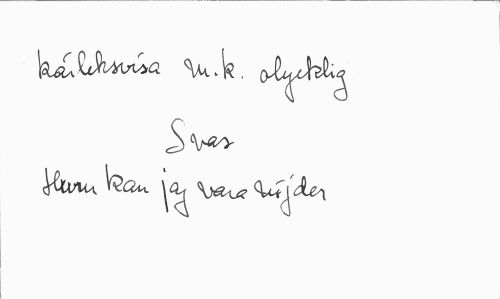 kärleksvisa m.k. olycklig
Svar
Hurn kan jag vara nöjder